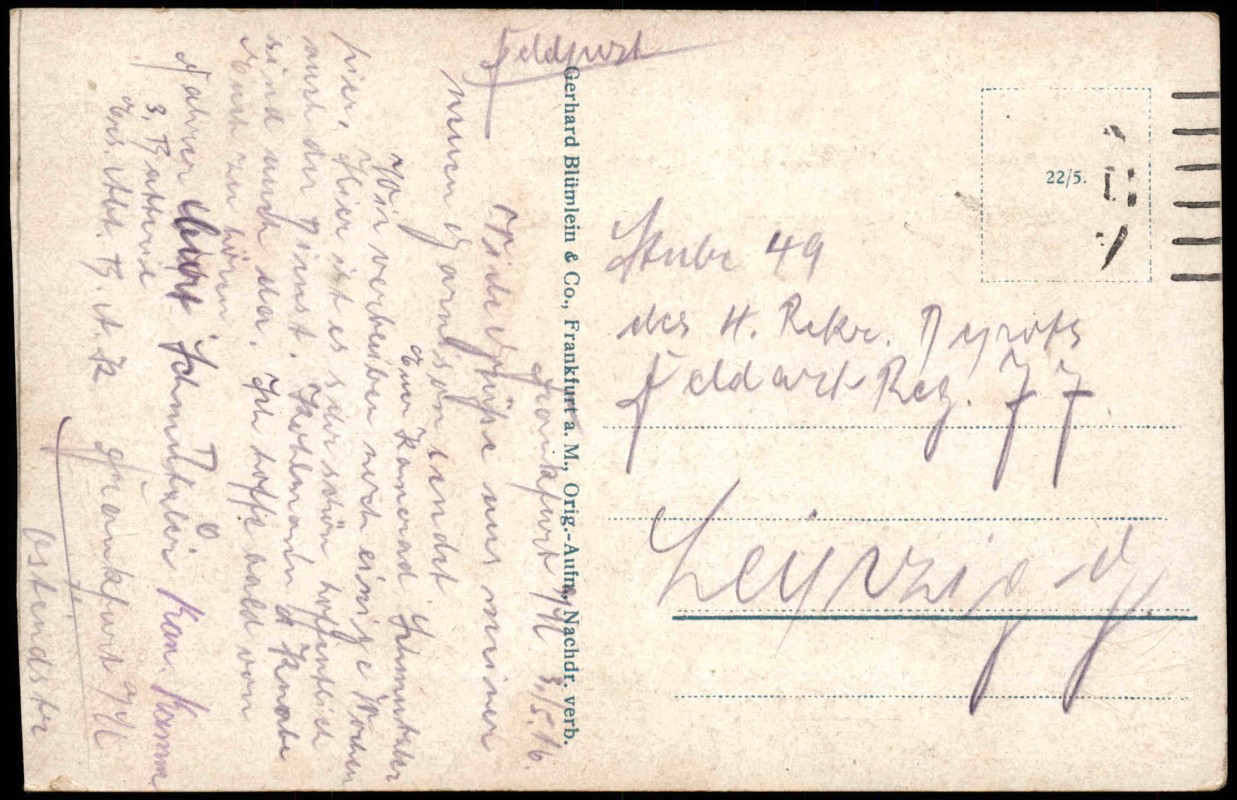 Feldpost
Stube 49
des II. Rekr. Depots
Feldart-Reg. 77
Leipzig-G.
Frankfurt a/M. 3./5.16.
Viele Grüße aus meiner
neuen Garnison sendet
Euer Kamerad Schmutzler
Wir verbleiben noch einige Wochen
hier. Hier ist es sehr schön hoffentlich
auch der Dienst. Kothemann &amp; Knabe
sind auch da. Ich hoffe bald von
Euch zu hören
Fahrer Schmutzler
3. Batterie
Ers. Abt.
Frankfurt a/M
Ostendstr
Gerhard Blümlein & Co., Frankfurt a. M., Orig.-Aufn., Nachdr. verb.
22/5.